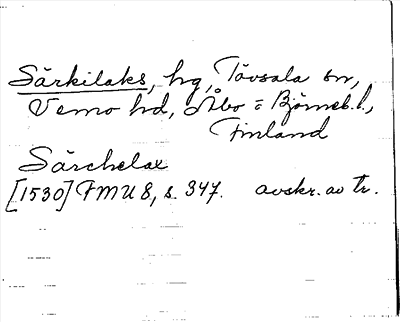 Särkilaks, hg, Tövsala sn,
Vemo hd, Åbo = Björneb. l.,
Finland
Särchelax
[1530] FMU 8, s. 347. avskr. av tr.